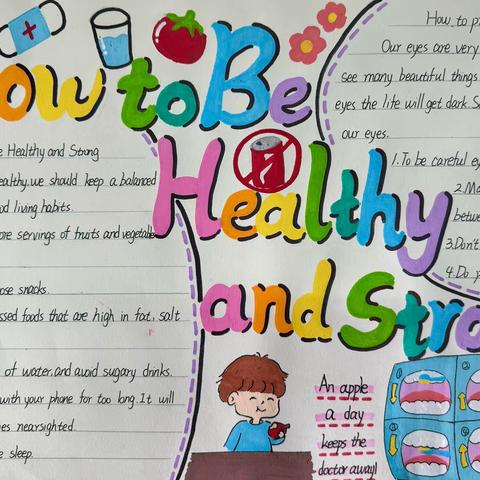 ow to Be
Healthy
and Stro
e Healthy and Strong
ealthy, we should keep a balanced
od living habits.
ore servings of fruits and vegetable
ose snacks.
ssed foods that are high in fat, salt
of water, and avoid sugary drinks.
with your phone for too long. It will
es nearsighted.
e sleep.
How to p
Our eyes are very
see many beautiful things
eyes the life will get dark. S
our eyes.
1. To be careful ey
2. Ma
betwe
3. Don't
4. Do
An apple
a day
keeps the
doctor away!
①
②
③
④